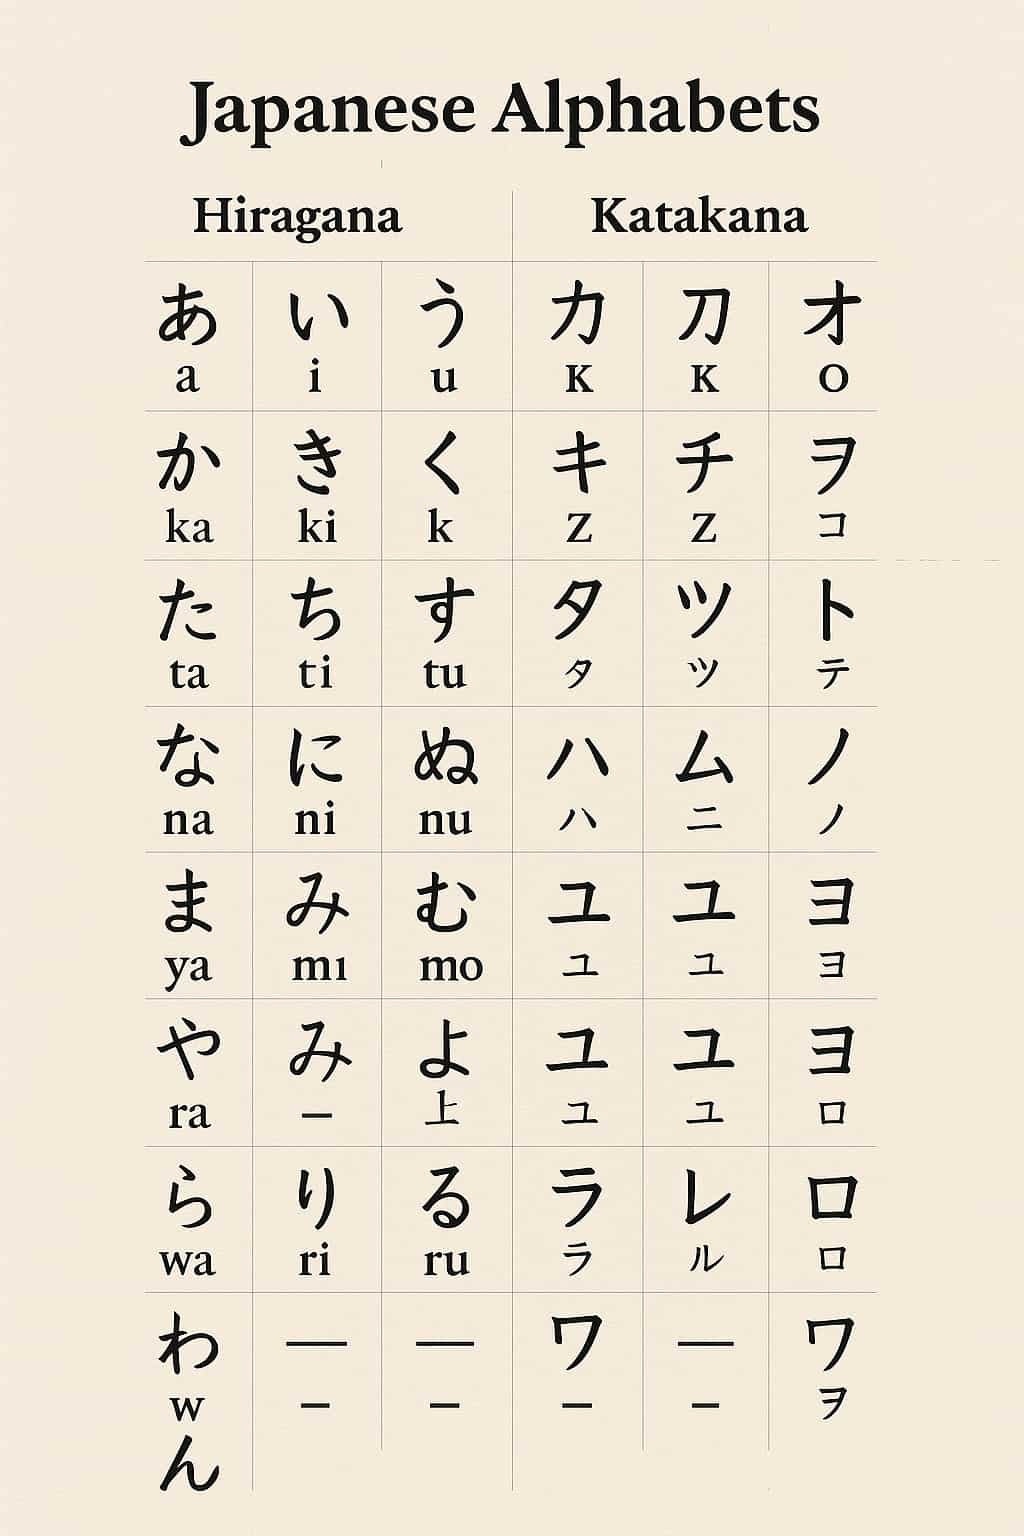 Japanese Alphabets
Hiragana Katakana
あ い う カ 刀 オ
a i u K K O
か き く キ チ ヲ
ka ki k Z Z コ
た ち す タ ツ ト
ta ti tu タ ツ テ
な に ぬ ハ ム ノ
na ni nu ハ ニ ノ
ま み む ユ ユ ヨ
ya mı mo ユ ユ ヨ
や み よ ユ ユ ヨ
ra – 上 ユ ユ ロ
ら り る ラ レ ロ
wa ri ru ラ ル ロ
わ — — ワ — ワ
w – – – – ヲ
ん